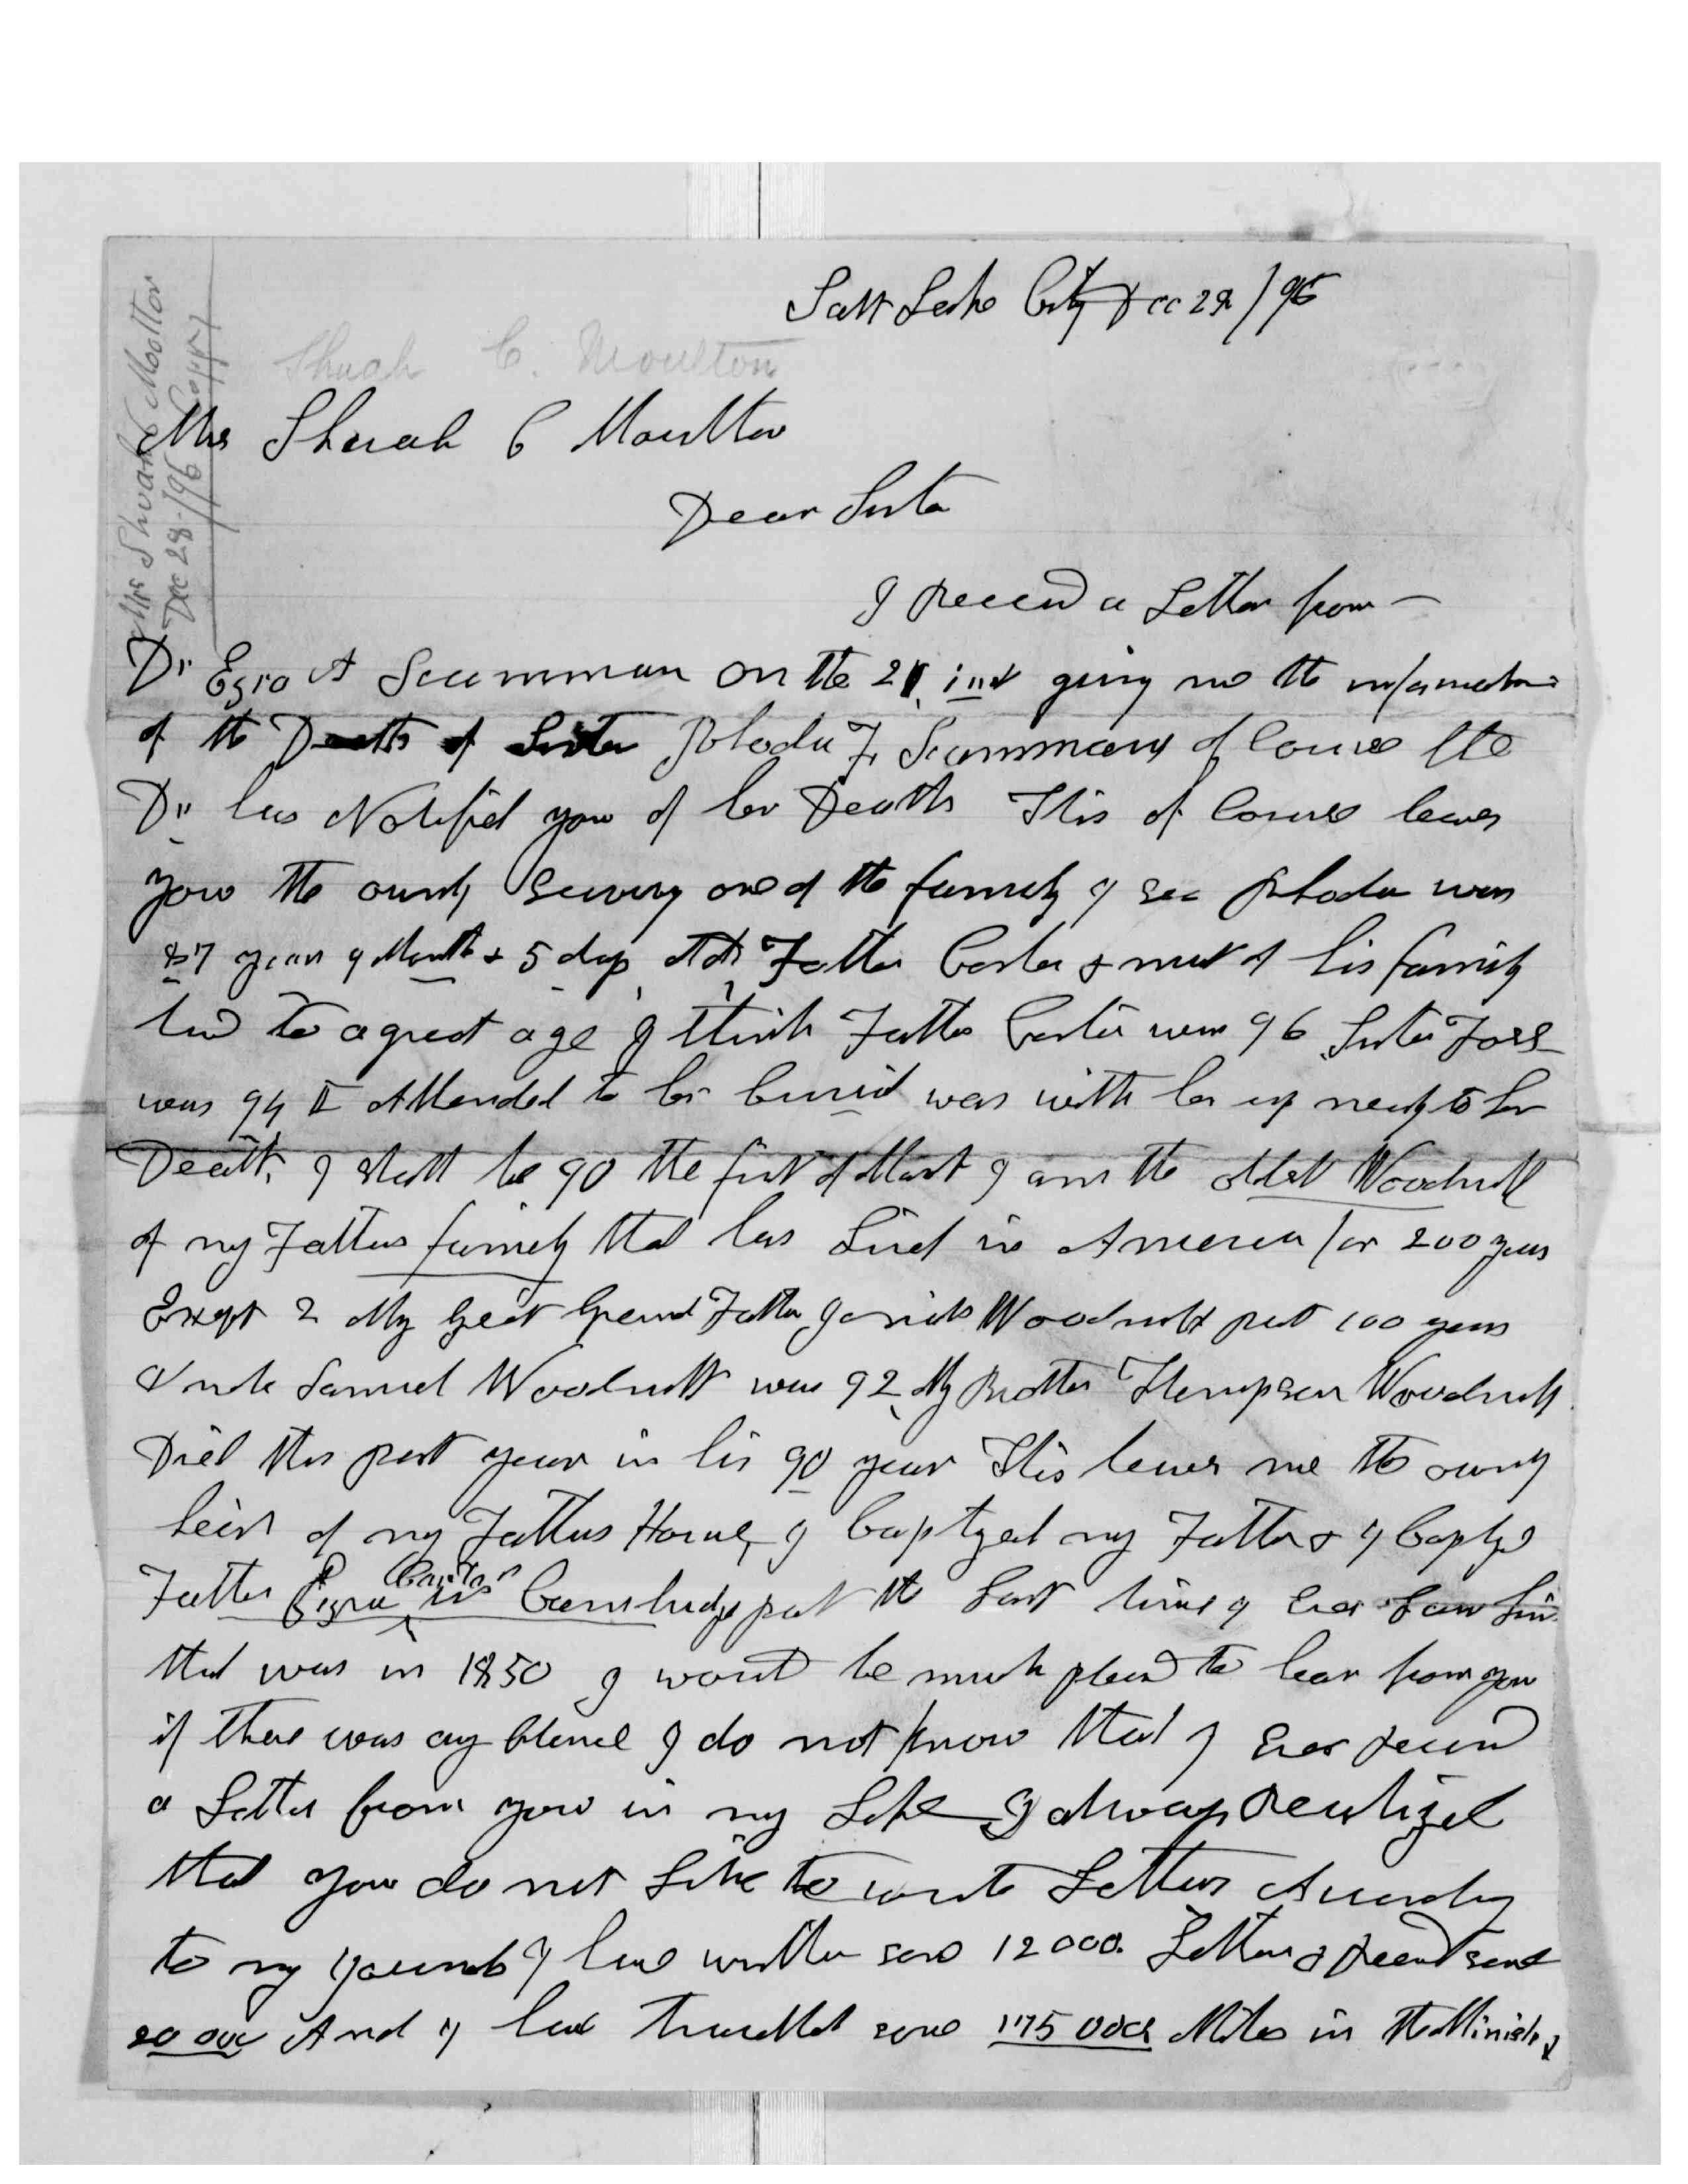 Salt Lake City Dec 28 / 96
Shuah C. Moulton
Mrs Shuah C Moulton
Mrs Shuah C Moulton
Dec 28 - / 96 Copy
Dear Sister
I Receivd a Letter from
Dr Ezra A Scammon on the 21 inst giving me the information
of the Death of Sister Rhoda F. Scammans of Course the
Dr has Notified you of her Death This of Course leaves
you the ownly one of the family I see Rhoda was
87 years 9 Month & 5 days old Father Carter & most of his family
livd to a great age I think Father Carter was 96 Sister Foss
was 94 I Attended to her burial was with her up nearly to her
Death, I shall be 90 the first of March I am the oldest Woodruff
of my Fathers family that has Livd in America for 200 years
Except 2 My Great Grand Father Woodruff past 100 years
Uncle Samuel Woodruff was 92 My Brother Thompson Woodruff
Died this past year in his 90 year This leaves me the ownly
heir of my Fathers House, I baptized my Father & I Baptzd
Father Ezra Carter in Cambridgeport the Last time I Ever Saw him
that was in 1850 I would be much pleasd to hear from you
if there was any Chance I do not know that I Ever Receivd
a Letter from you in my Life I always Realized
that you do not Like to write Letters According
to my Journals I have written some 12000. Letters & Receivd some
20 000 And I have travelled some 175 000 Miles in the Ministry